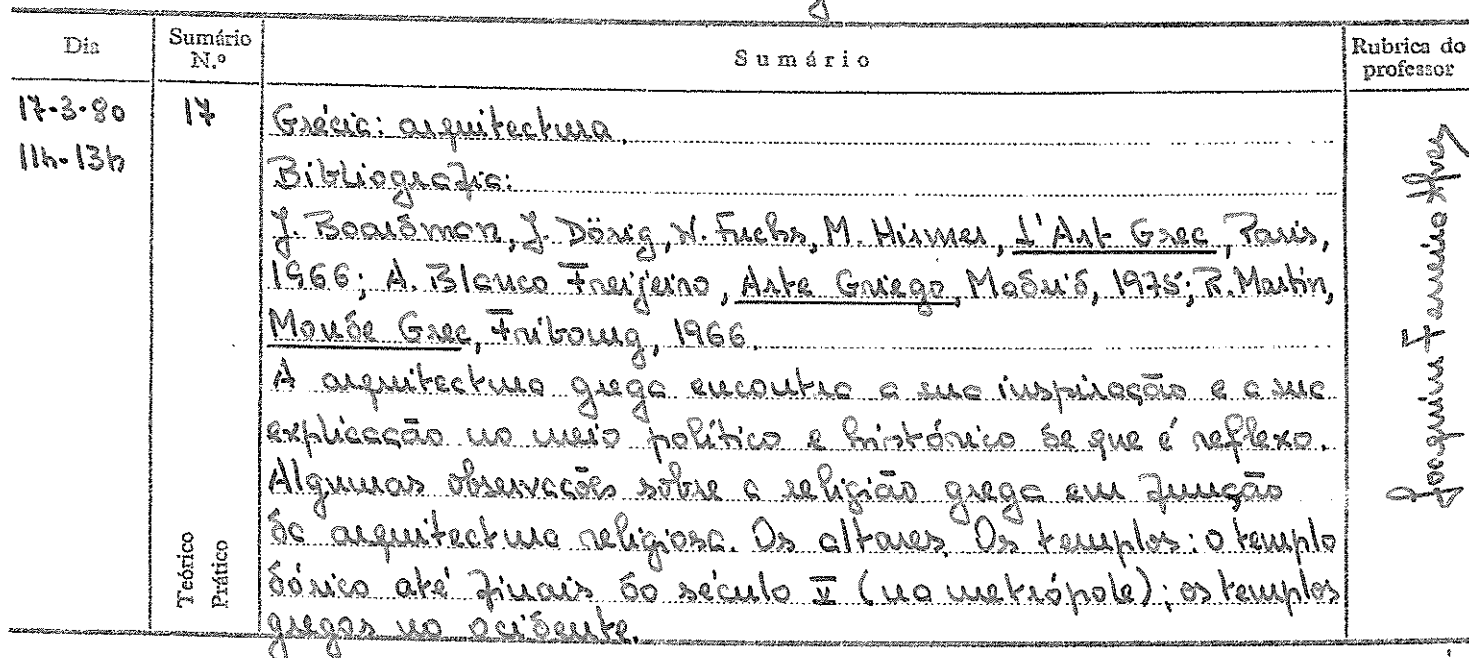 Dia Sumário N.º Sumário Rubrica do professor
17-3-80 17 Grécia: arquitectura.
11h-13h Bibliografia:
J. Boardman, J. Dörig, W. Fuchs, M. Hirmer, L'Art Grec, Paris,
1966; A. Blanco Freijeiro, Arte Griego, Madrid, 1975; R. Martin,
Monde Grec, Fribourg, 1966.
A arquitectura grega encontra a sua inspiração e a sua
explicação no meio político e histórico de que é reflexo.
Algumas observações sobre a religião grega em função
da arquitectura religiosa. Os altares. Os templos: o templo
dórico até finais do século V (na metrópole); os templos
gregos no ocidente.
Teórico
Prático
Joaquim Ferreira Alves